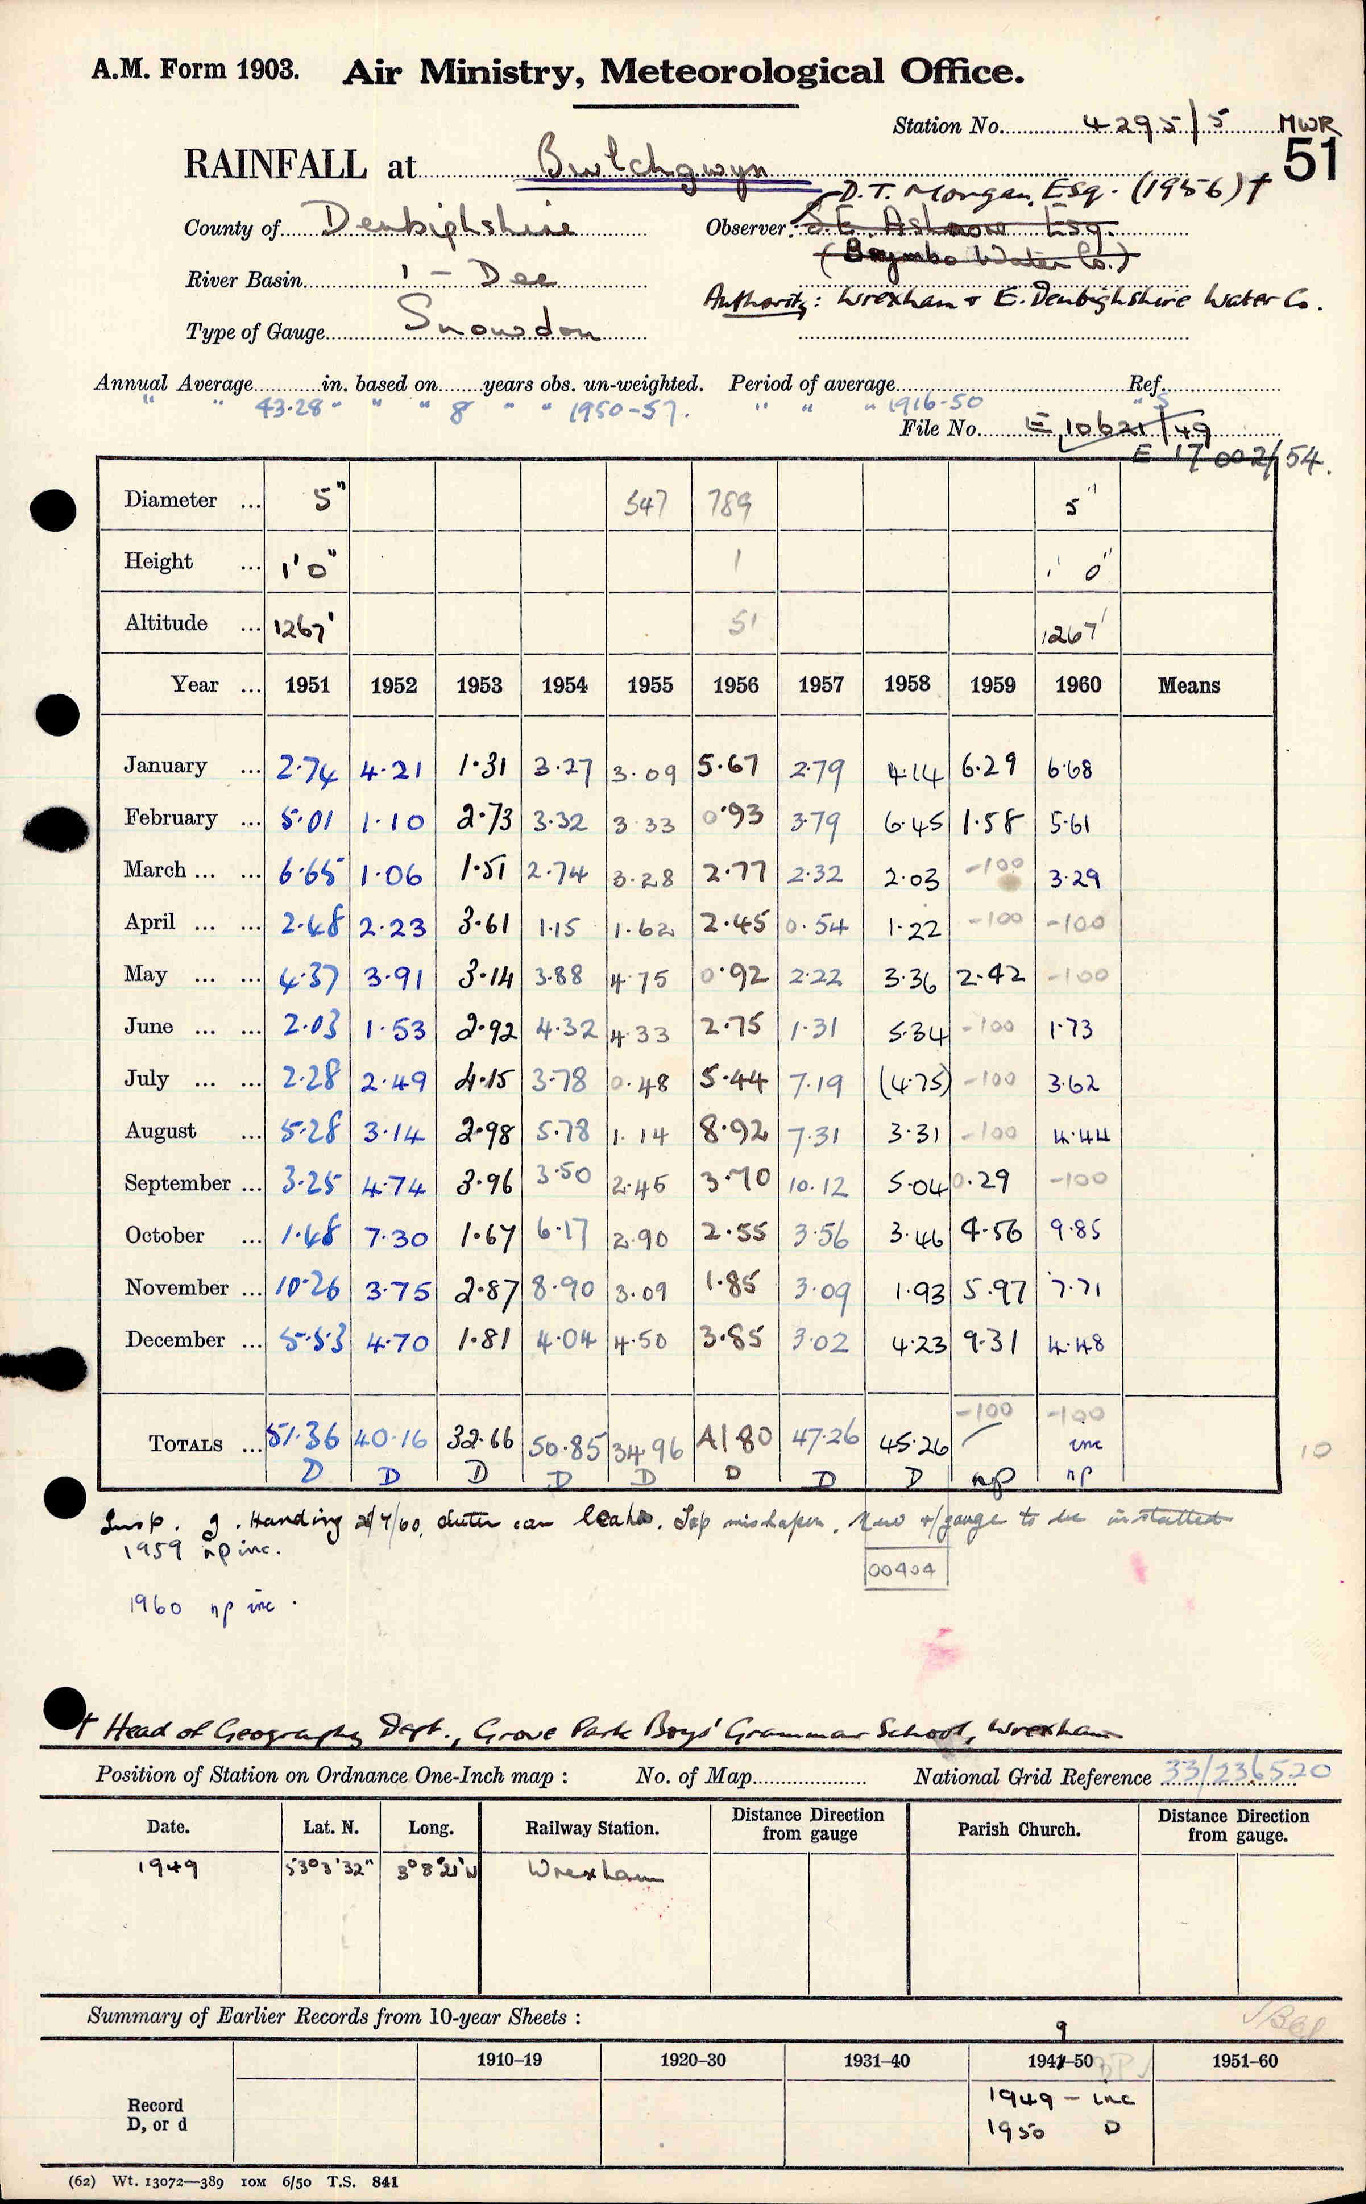 A.M. Form 1903. Air Ministry, Meteorological Office.
Station No. 4295/5 MWR
51
RAINFALL at Bwlchgwyn
D. T. Morgan, Esq. (1956) †
County of Denbighshire Observer: S.E. Ashmore Esq.
(Brymbo Water Co.)
River Basin 1 - Dee
Authority: Wrexham & E. Denbighshire Water Co.
Type of Gauge Snowdon
Annual Average in. based on years obs. un-weighted. Period of average Ref.
" " 43.28 " " " 8 " " 1950-57. " " " 1916-50 " S
File No. E 10621/49
E 17002/54.
Diameter ... 5" 547 789 5"
Height ... 1'0" 1 1' 0"
Altitude ... 1267' 51 1267'
Year ... 1951 1952 1953 1954 1955 1956 1957 1958 1959 1960 Means
January ... 2.74 4.21 1.31 3.27 3.09 5.67 2.79 4.14 6.29 6.68
February ... 5.01 1.10 2.73 3.32 3.33 0.93 3.79 6.45 1.58 5.61
March ... ... 6.65 1.06 1.51 2.74 3.28 2.77 2.32 2.03 -100 3.29
April ... ... 2.48 2.23 3.61 1.15 1.62 2.45 0.54 1.22 -100 -100
May ... ... 4.37 3.91 3.14 3.88 4.75 0.92 2.22 3.36 2.42 -100
June ... ... 2.03 1.53 2.92 4.32 4.33 2.75 1.31 5.34 -100 1.73
July ... ... 2.28 2.49 4.15 3.78 0.48 5.44 7.19 (4.75) -100 3.62
August ... 5.28 3.14 2.98 5.78 1.14 8.92 7.31 3.31 -100 4.44
September ... 3.25 4.74 3.96 3.50 2.45 3.70 10.12 5.04 0.29 -100
October ... 1.48 7.30 1.67 6.17 2.90 2.55 3.56 3.46 4.56 9.85
November ... 10.26 3.75 2.87 8.90 3.09 1.85 3.09 1.93 5.97 7.71
December ... 5.53 4.70 1.81 4.04 4.50 3.85 3.02 4.23 9.31 4.48
-100 -100
TOTALS ... 51.36 40.16 32.66 50.85 34.96 41.80 47.26 45.26 / inc
D D D D D D D D np np
10
Insp. J. Harding 21/4/60, outer can leaks. Top mishapen. New + / gauge to be installed
1959 np inc.
00404
1960 np inc.
† Head of Geography Dept., Grove Park Boys' Grammar School, Wrexham
Position of Station on Ordnance One-Inch map : No. of Map National Grid Reference 33/236520
Date. Lat. N. Long. Railway Station. Distance Direction from gauge Parish Church. Distance Direction from gauge.
1949 53°3'32" 3°8'21"W Wrexham
Summary of Earlier Records from 10-year Sheets :
9
1910–19 1920–30 1931–40 1941–50 1951–60
Record
D, or d
1949 - inc
1950 D
(62) Wt. 13072—389 10M 6/50 T.S. 841